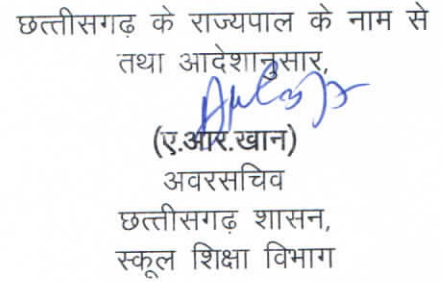 छत्तीसगढ़ के राज्यपाल के नाम से
तथा आदेशानुसार,
(ए.आर.खान)
अवरसचिव
छत्तीसगढ़ शासन,
स्कूल शिक्षा विभाग